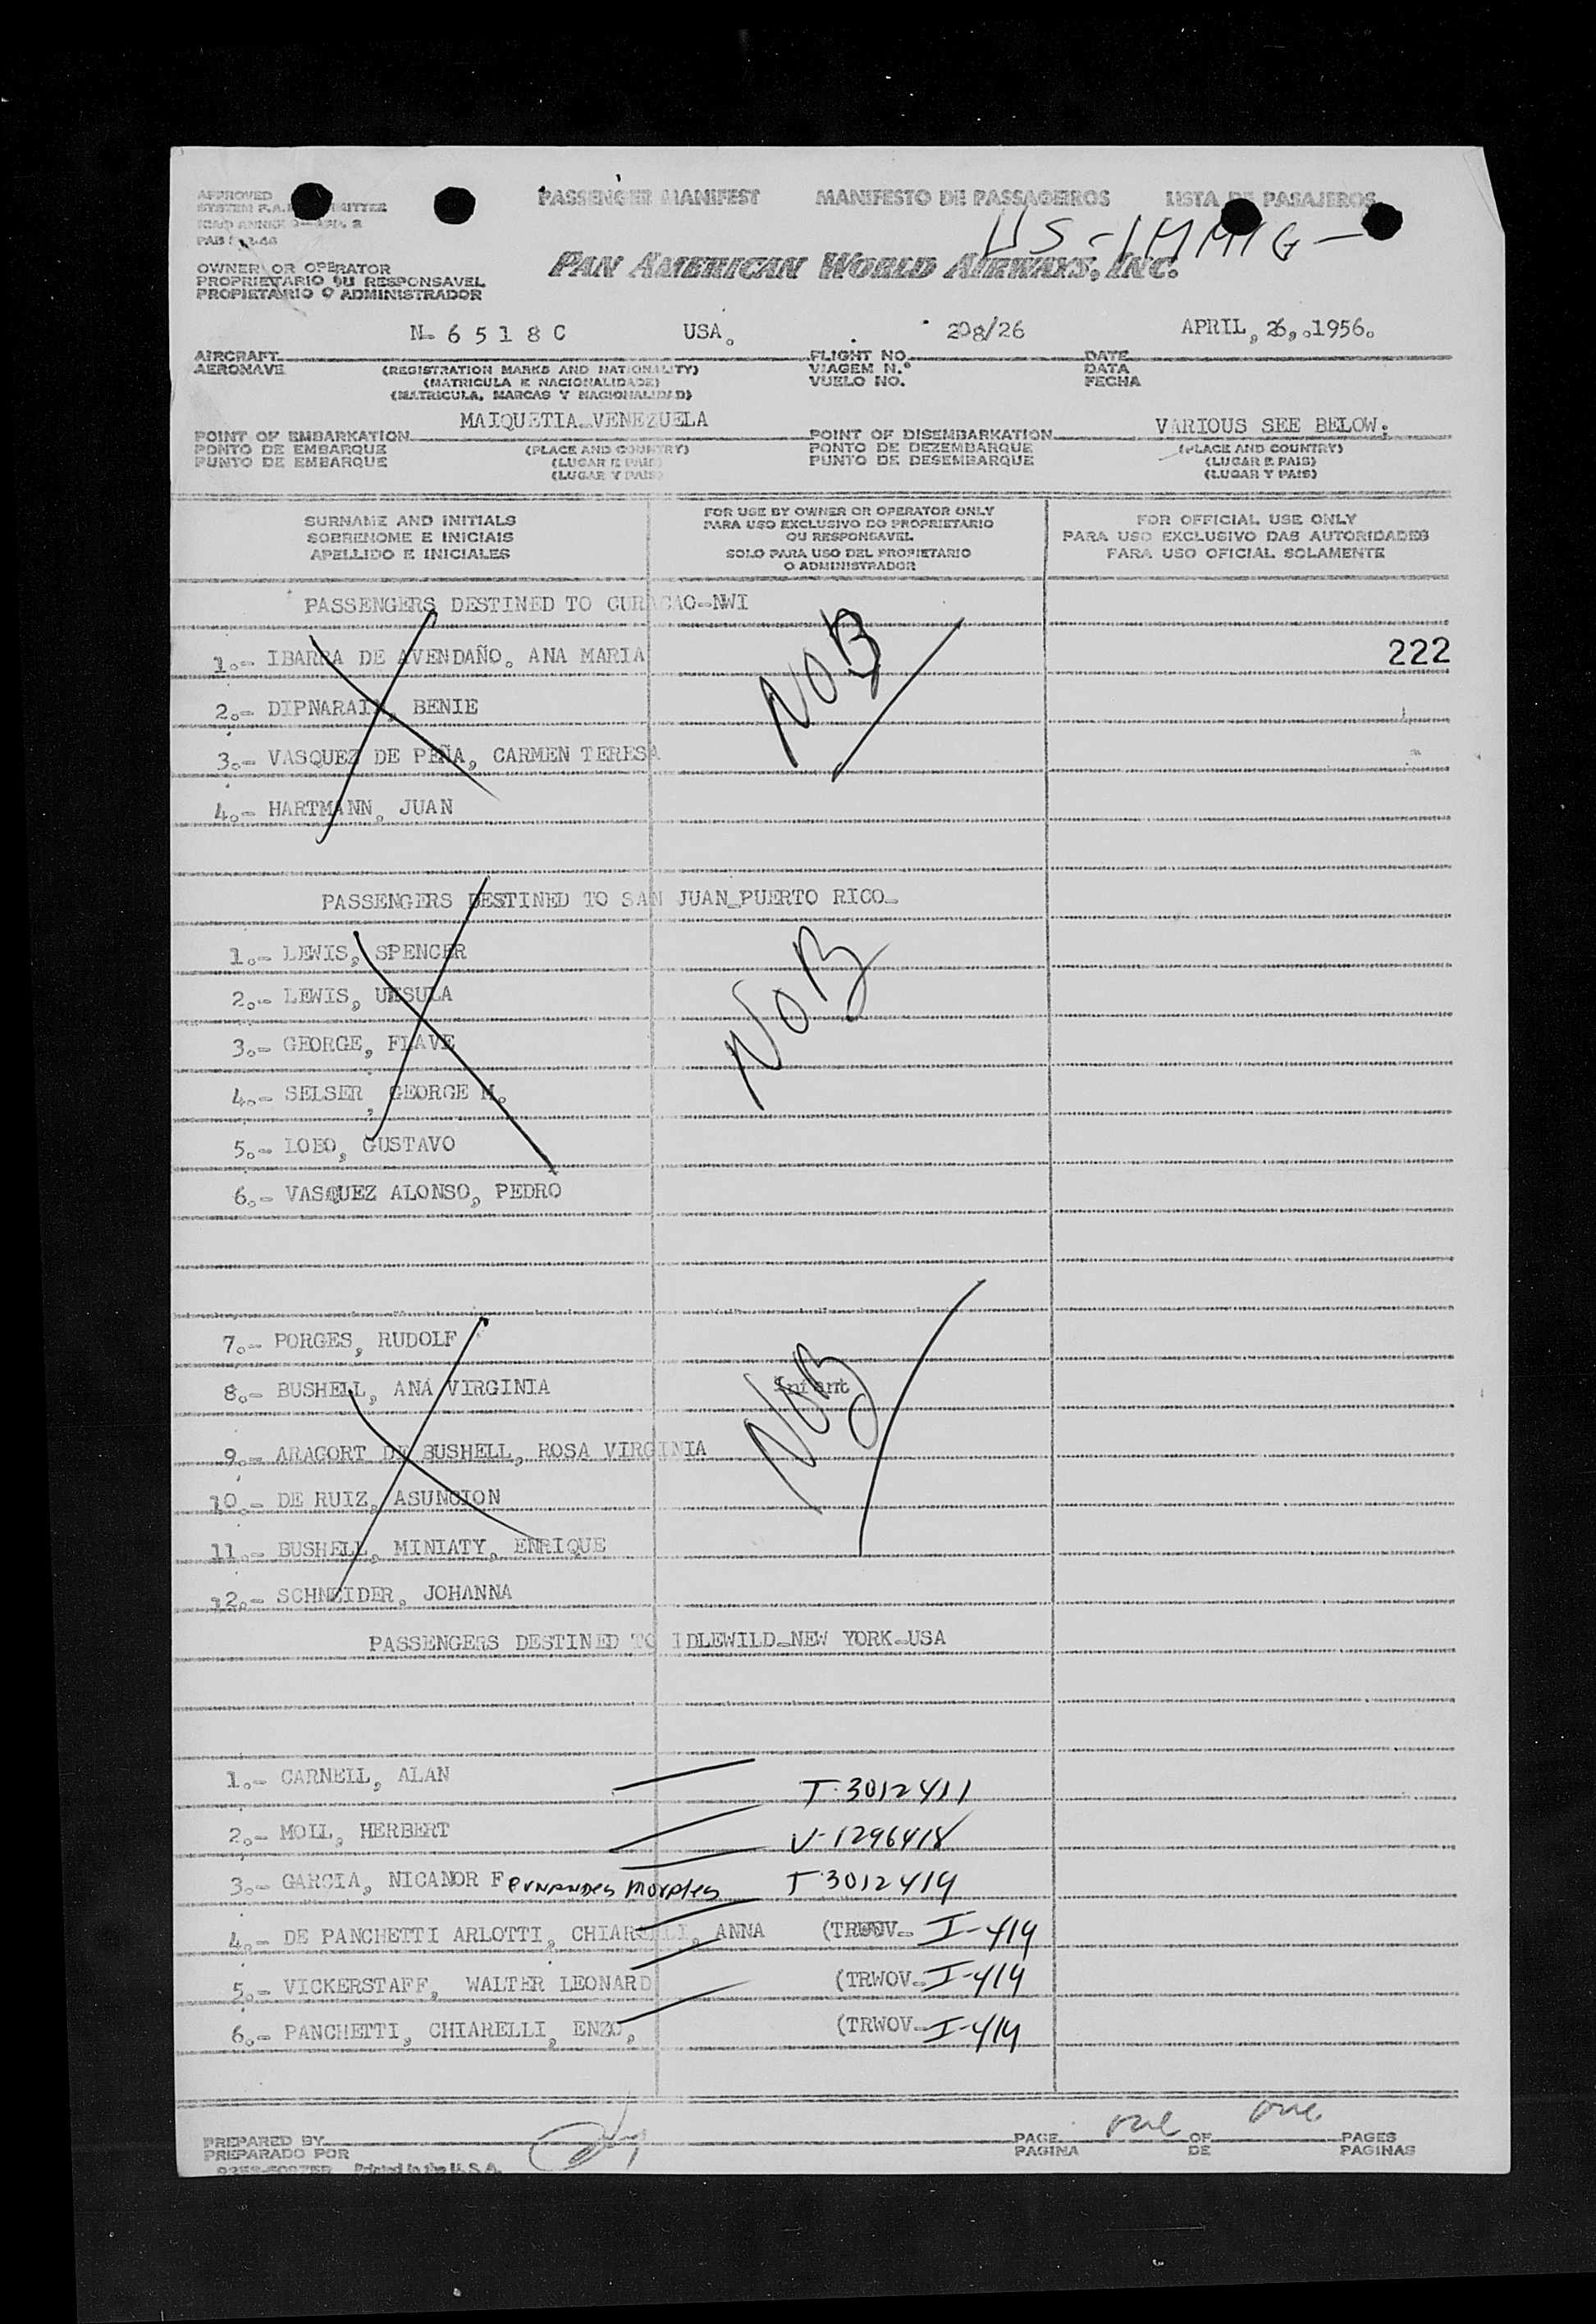 APPROVED PASSENGER MANIFEST MANIFESTO DE PASSAGEIROS LISTA DE PASAJEROS
SYSTEM F.A.
US-IMMIG-
OWNER OR OPERATOR
PROPRIETARIO OU RESPONSAVEL
PROPIETARIO O ADMINISTRADOR
PAN AMERICAN WORLD AIRWAYS, INC.
N-6518C USA. 208/26 APRIL, 26, 1956.
AIRCRAFT FLIGHT NO. DATE
AERONAVE (REGISTRATION MARKS AND NATIONALITY) VIAGEM N.º DATA
(MATRICULA E NACIONALIDADE) VUELO NO. FECHA
(MATRICULA, MARCAS Y NACIONALIDAD)
MAIQUETIA-VENEZUELA VARIOUS SEE BELOW:
POINT OF EMBARKATION POINT OF DISEMBARKATION
PONTO DE EMBARQUE (PLACE AND COUNTRY) PONTO DE DEZEMBARQUE (PLACE AND COUNTRY)
PUNTO DE EMBARQUE (LUGAR E PAIS) PUNTO DE DESEMBARQUE (LUGAR E PAIS)
(LUGAR Y PAIS) (LUGAR Y PAIS)
SURNAME AND INITIALS
SOBRENOME E INICIAIS
APELLIDO E INICIALES
FOR USE BY OWNER OR OPERATOR ONLY
PARA USO EXCLUSIVO DO PROPRIETARIO
OU RESPONSAVEL
SOLO PARA USO DEL PROPIETARIO
O ADMINISTRADOR
FOR OFFICIAL USE ONLY
PARA USO EXCLUSIVO DAS AUTORIDADES
PARA USO OFICIAL SOLAMENTE
PASSENGERS DESTINED TO CURACAO-NWI
1.- IBARRA DE AVENDAÑO. ANA MARIA 222
2.- DIPNARAIN, BENIE
3.- VASQUEZ DE PEÑA, CARMEN TERESA
4.- HARTMANN, JUAN
NOB
PASSENGERS DESTINED TO SAN JUAN-PUERTO RICO-
1.- LEWIS, SPENCER
2.- LEWIS, URSULA
3.- GEORGE, FLAVE
4.- SELSER, GEORGE M.
5.- LOBO, GUSTAVO
6.- VASQUEZ ALONSO, PEDRO
NOB
7.- PORGES, RUDOLF
8.- BUSHELL, ANA VIRGINIA Infant
9.- ARAGORT DE BUSHELL, ROSA VIRGINIA
10.- DE RUIZ, ASUNCION
11.- BUSHELL, MINIATY, ENRIQUE
12.- SCHNEIDER, JOHANNA
NOB
PASSENGERS DESTINED TO IDLEWILD-NEW YORK-USA
1.- CARNELL, ALAN T-3012411
2.- MOLL, HERBERT V-1296418
3.- GARCIA, NICANOR FERNANDES MORALES T-3012419
4.- DE PANCHETTI ARLOTTI, CHIARELLI, ANNA (TRWOV- I-414
5.- VICKERSTAFF, WALTER LEONARD (TRWOV- I-414
6.- PANCHETTI, CHIARELLI, ENZO, (TRWOV- I-414
PREPARED BY PAGE one OF one PAGES
PREPARADO POR PAGINA DE PAGINAS
Printed in the U.S.A.